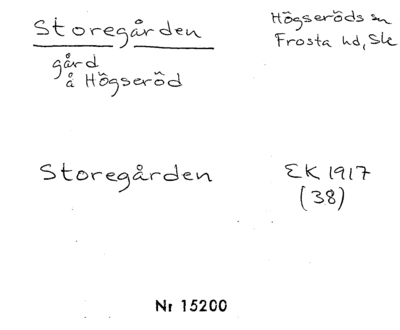 Storegården
Högseröds sn
Frosta hd, Sk
gård
å Högseröd
Storegården
EK 1917
(38)
Nr 15200